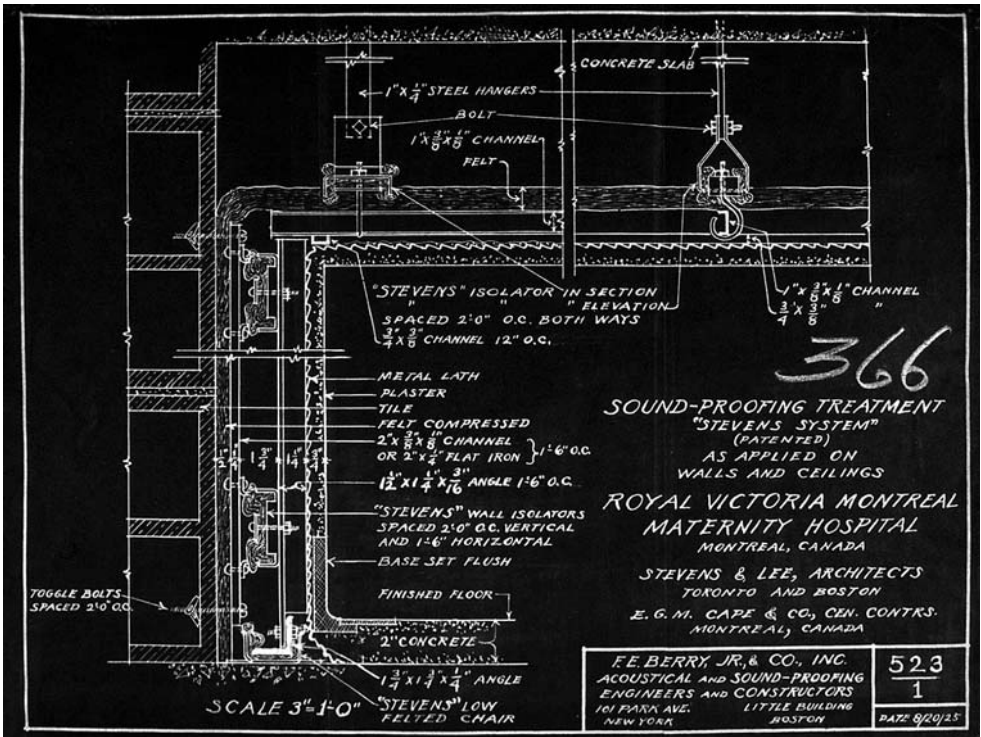 CONCRETE SLAB
1" x 1/4" STEEL HANGERS
BOLT
1" x 3/8" x 1/8" CHANNEL
FELT
"STEVENS" ISOLATOR IN SECTION
" " ELEVATION
SPACED 2'-0" O.C. BOTH WAYS
3/4" x 3/8" CHANNEL 12" O.C.
1" x 3/8" x 1/8" CHANNEL
3/4" x 3/8" "
METAL LATH
PLASTER
TILE
FELT COMPRESSED
2" x 3/8" x 1/8" CHANNEL
OR 2" x 1/4" FLAT IRON } 1'-6" O.C.
1 1/2" x 1 1/4" x 3/16" ANGLE 1'-6" O.C.
"STEVENS" WALL ISOLATORS
SPACED 2'-0" O.C. VERTICAL
AND 1'-6" HORIZONTAL
BASE SET FLUSH
FINISHED FLOOR
TOGGLE BOLTS
SPACED 2'-0" O.C.
2" CONCRETE
1 3/4" x 1 3/4" x 1/4" ANGLE
"STEVENS" LOW
FELTED CHAIR
SCALE 3"=1'-0"
366
SOUND-PROOFING TREATMENT
"STEVENS SYSTEM"
(PATENTED)
AS APPLIED ON
WALLS AND CEILINGS
ROYAL VICTORIA MONTREAL
MATERNITY HOSPITAL
MONTREAL, CANADA
STEVENS & LEE, ARCHITECTS
TORONTO AND BOSTON
E. G. M. CAPE & CO., GEN. CONTRS.
MONTREAL, CANADA
F.E. BERRY, JR., & CO., INC.
ACOUSTICAL AND SOUND-PROOFING
ENGINEERS AND CONSTRUCTORS
101 PARK AVE. LITTLE BUILDING
NEW YORK BOSTON
523
1
DATE 8/20/25